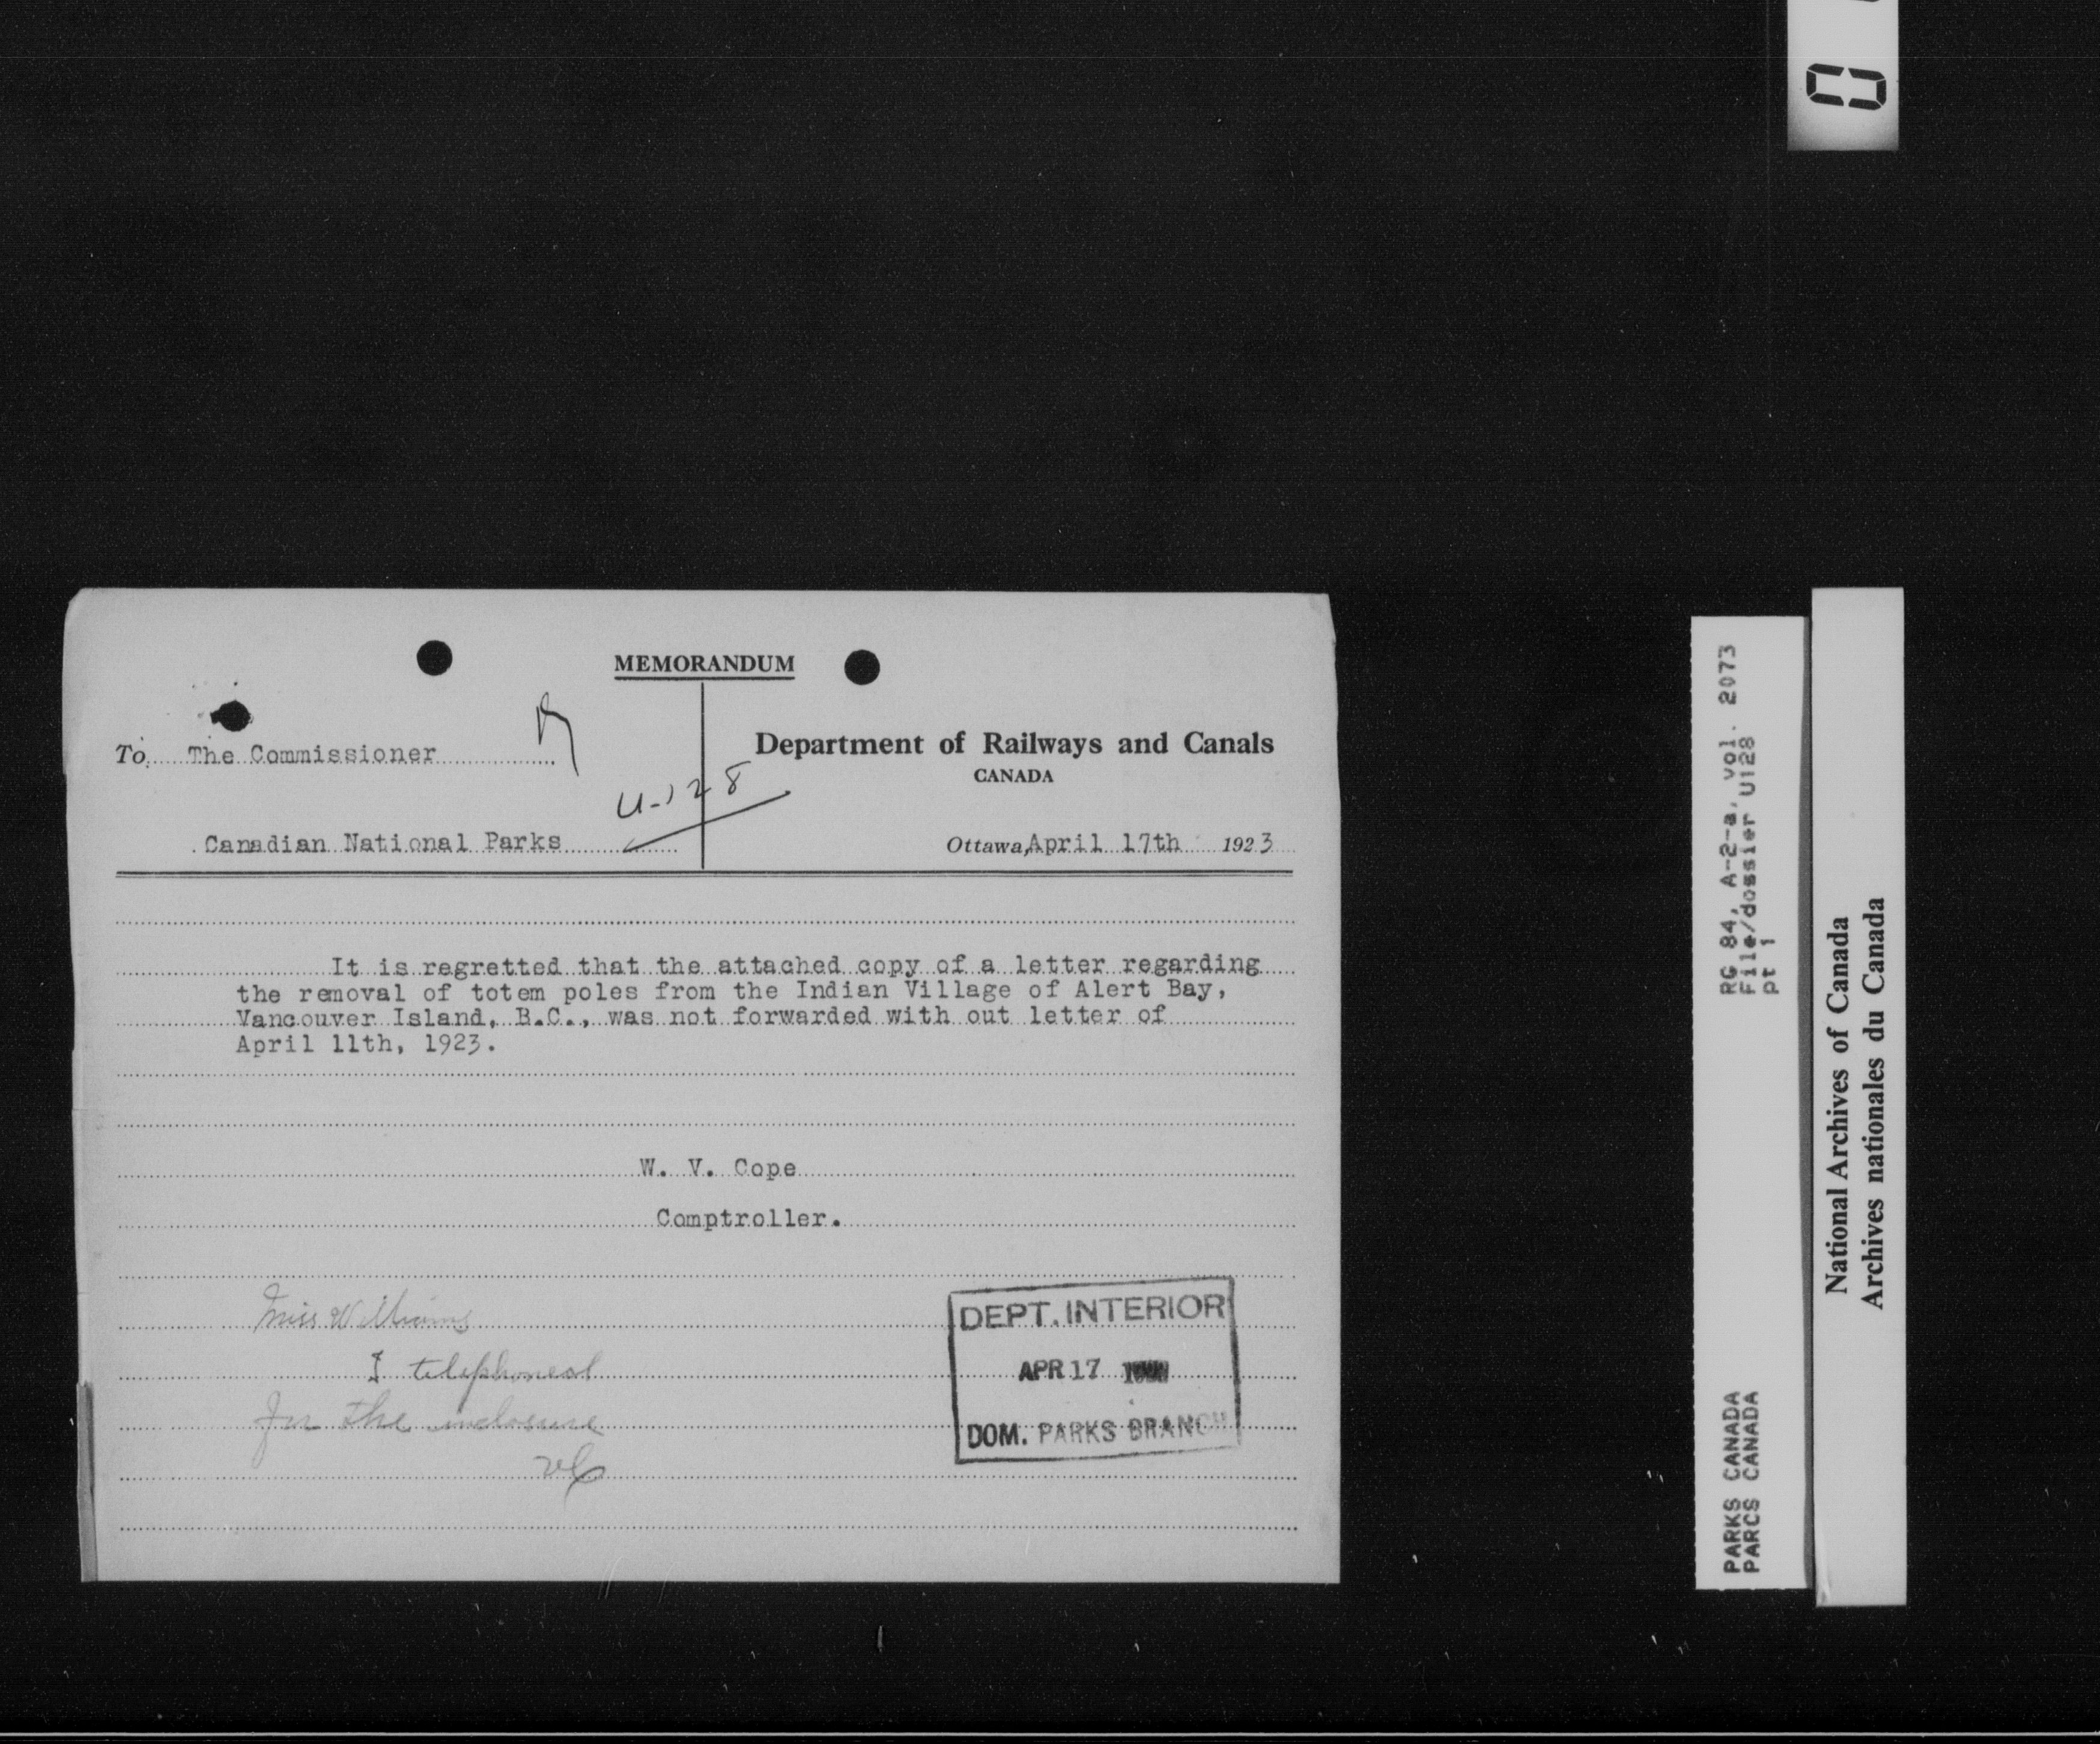 MEMORANDUM
To The Commissioner
Canadian National Parks
U-128
Department of Railways and Canals
CANADA
Ottawa, April 17th 1923
It is regretted that the attached copy of a letter regarding
the removal of totem poles from the Indian Village of Alert Bay,
Vancouver Island, B.C., was not forwarded with out letter of
April 11th, 1923.
W. V. Cope
Comptroller.
Miss Williams
I telephoned
for the inclosure
DEPT. INTERIOR
APR 17
DOM. PARKS BRANCH
RG 84, A-2-a, vol. 2073
File/dossier U128
pt 1
PARKS CANADA
PARCS CANADA
National Archives of Canada
Archives nationales du Canada